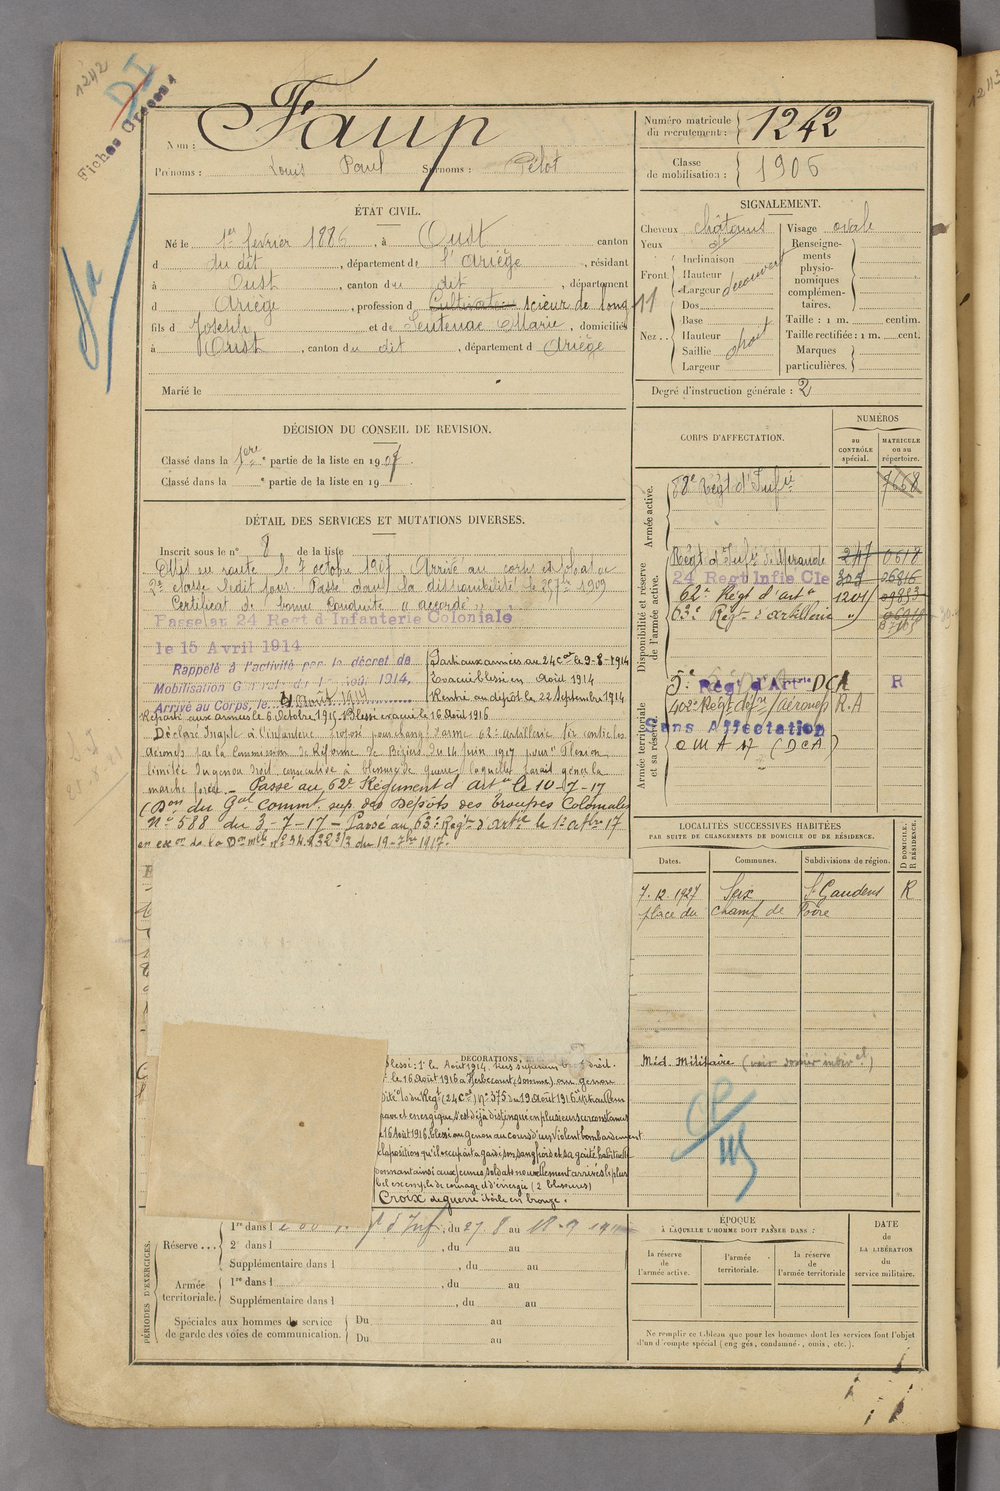 1242
DI
Fiches
Nom : Faup
Prénoms : Louis Paul Surnoms : Pélot
Numéro matricule du recrutement : 1242
Classe de mobilisation : 1906
ÉTAT CIVIL.
Né le 1er février 1886, à Oust canton
d du dit, département de l'Ariège, résidant
à Oust, canton du dit, département
d Ariège, profession d Cultivateur scieur de long
fils d Joseph et de Sentenac Marie, domiciliés
à Oust, canton du dit, département d Ariège
Marié le
SIGNALEMENT.
Cheveux châtains Visage ovale
Yeux
Front. Inclinaison
Hauteur
Largeur découvert
Nez.. Dos
Base
Hauteur droit
Saillie
Largeur
Renseignements physionomiques complémentaires.
Taille : 1 m. centim.
Taille rectifiée : 1 m. cent.
Marques particulières.
Degré d'instruction générale : 2
DÉCISION DU CONSEIL DE REVISION.
Classé dans la 1ère partie de la liste en 1907.
Classé dans la e partie de la liste en 19
DÉTAIL DES SERVICES ET MUTATIONS DIVERSES.
Inscrit sous le n° 8 de la liste
Mis en route le 7 octobre 1907 Arrivé au corps et soldat de
2e classe ledit jour. Passé dans la disponibilité le 25 7bre 1909
Certificat de bonne conduite "accordé"
Passe au 24 Regt d'Infanterie Coloniale
le 15 Avril 1914
Rappelé à l'activité par le décret de
Mobilisation Générale du 1er Août 1914,
Arrivé au Corps, le Août 1914
Parti aux armées au 24 Cal le 9-8-1914
Evacué blessé en Août 1914
Rentré au dépôt le 22 Septembre 1914
Reparti aux armées le 6 Octobre 1915. Blessé évacué le 16 Août 1916
Déclaré Inapte à l'infanterie proposé pour changt d'arme 62e artillerie
aérones par la Commission de Réforme de Béziers du 14 juin 1917 pour "flexion
limitée du genou droit, consécutive à blessure de guerre laquelle parait gêner la
marche forcée. — Passé au 62e Régiment d'artie le 10-7-17
(Don du Gal Commt sup. des Dépôts des troupes Coloniales
N° 588 du 3-7-17 — Passé au 63e Régt d'artie le 1er octbre 17
en exon de la Don mlle n° 34232 3/3 du 19-7bre 1917.
CORPS D'AFFECTATION.
NUMÉROS
au CONTRÔLE spécial.
MATRICULE ou au répertoire.
Armée active.
88e Régt d'Infie 7668
Disponibilité et réserve de l'armée active.
Régt d'Infie de Mirande 247 0618
24 Regt Infie Cle 325 06816
62e Régt d'artie 1201 09833
63e Régt d'artillerie "
Armée territoriale et sa réserve
5e Régt d'Artrie DCA R
402e Régt défse /aéronefs R.A
Sans Affectation
O M A 17 (DCA)
LOCALITÉS SUCCESSIVES HABITÉES
PAR SUITE DE CHANGEMENTS DE DOMICILE OU DE RÉSIDENCE.
Dates. Communes. Subdivisions de région. D DOMICILE. R RÉSIDENCE.
7.12.1927 St Gaudens R
place du Champ de Foire
Méd. Militaire
DÉCORATIONS,
blessé : 1° le Août 1914. tiers supérieur bras droit.
le 16 Août 1916 à Herbécourt (Somme) au genou
Cité à l'o du Régt (24 Cal) N° 375 du 19 Août 1916
brave et énergique, s'est déjà distingué en plusieurs circonstances
le 16 Août 1916, blessé au genou au cours d'un violent bombardement
de la position qu'il occupait a gardé son sang froid et sa gaité habituelle
donnant ainsi aux jeunes soldats nouvellement arrivés le plus
bel exemple de courage et d'énergie (2 blessures)
Croix de guerre étoile en bronze.
PÉRIODES D'EXERCICES.
Réserve... 1re dans l d'Inf, du 27.8 au 18-9
2e dans l , du au
Supplémentaire dans l , du au
Armée territoriale. 1re dans l , du au
Supplémentaire dans l , du au
Spéciales aux hommes du service de garde des voies de communication. Du au
Du au
ÉPOQUE
À LAQUELLE L'HOMME DOIT PASSER DANS :
la réserve de l'armée active.
l'armée territoriale.
la réserve de l'armée territoriale
DATE de LA LIBÉRATION du service militaire.
Ne remplir ce tableau que pour les hommes dont les services font l'objet
d'un décompte spécial (engagés, condamnés, omis, etc.).